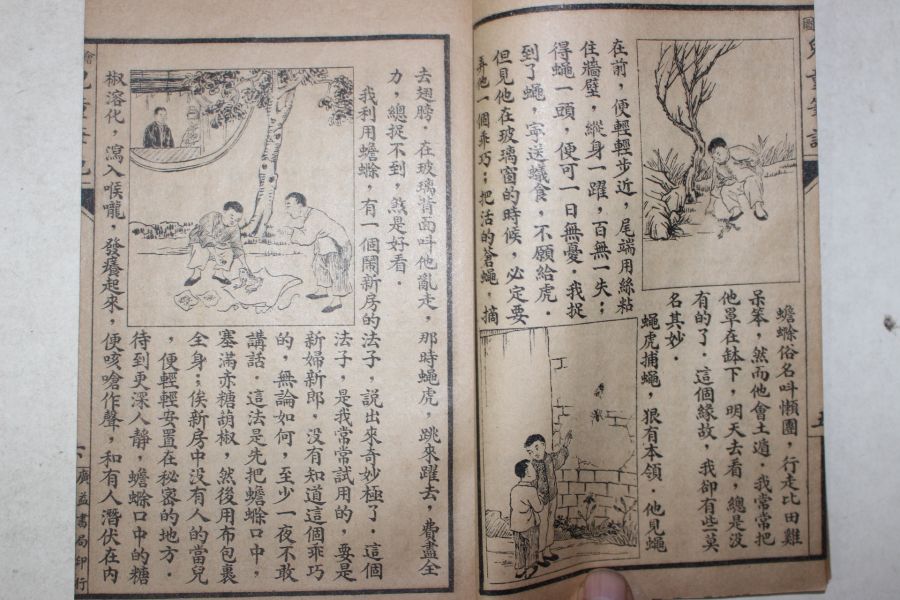 蟾蜍俗名叫懶團，行走比田雞
呆笨，然而他會土遁．我常常把
他罩在缽下，明天去看，總是沒
有的了．這個緣故，我卻有些莫
名其妙．
蠅虎捕蠅，狠有本領．他見蠅
在前，便輕輕步近，尾端用絲粘
住牆壁，縱身一躍，百無一失；
得蠅一頭，便可一日無憂．我捉
到了蠅，寧送蟻食，不願給虎．
但見他在玻璃窗的時候，必定要
弄他一個乖巧；把活的蒼蠅，摘
去翅膀．在玻璃背面叫他亂走，那時蠅虎，跳來躍去，費盡全
力，總捉不到，煞是好看．
我利用蟾蜍，有一個鬧新房的法子，說出來奇妙極了．這個
法子，是我常常試用的，要是
新婦新郎，沒有知道這個乖巧
的，無論如何，至少一夜不敢
講話．這法是先把蟾蜍口中，
塞滿赤糖胡椒，然後用布包裹
全身；俟新房中沒有人的當兒
，便輕輕安置在秘密的地方．
待到更深人靜，蟾蜍口中的糖
椒溶化，瀉入喉嚨，發癢起來，便咳嗆作聲，和有人潛伏在內
廣益書局印行